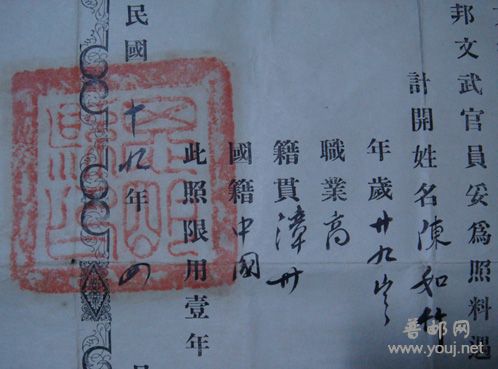 邦文武官員妥爲照料遇
計開姓名陳和竹
年歲廿九歲
職業商
籍貫漳州
國籍中國
此照限用壹年
民國十九年四
普邮网
www.youj.net